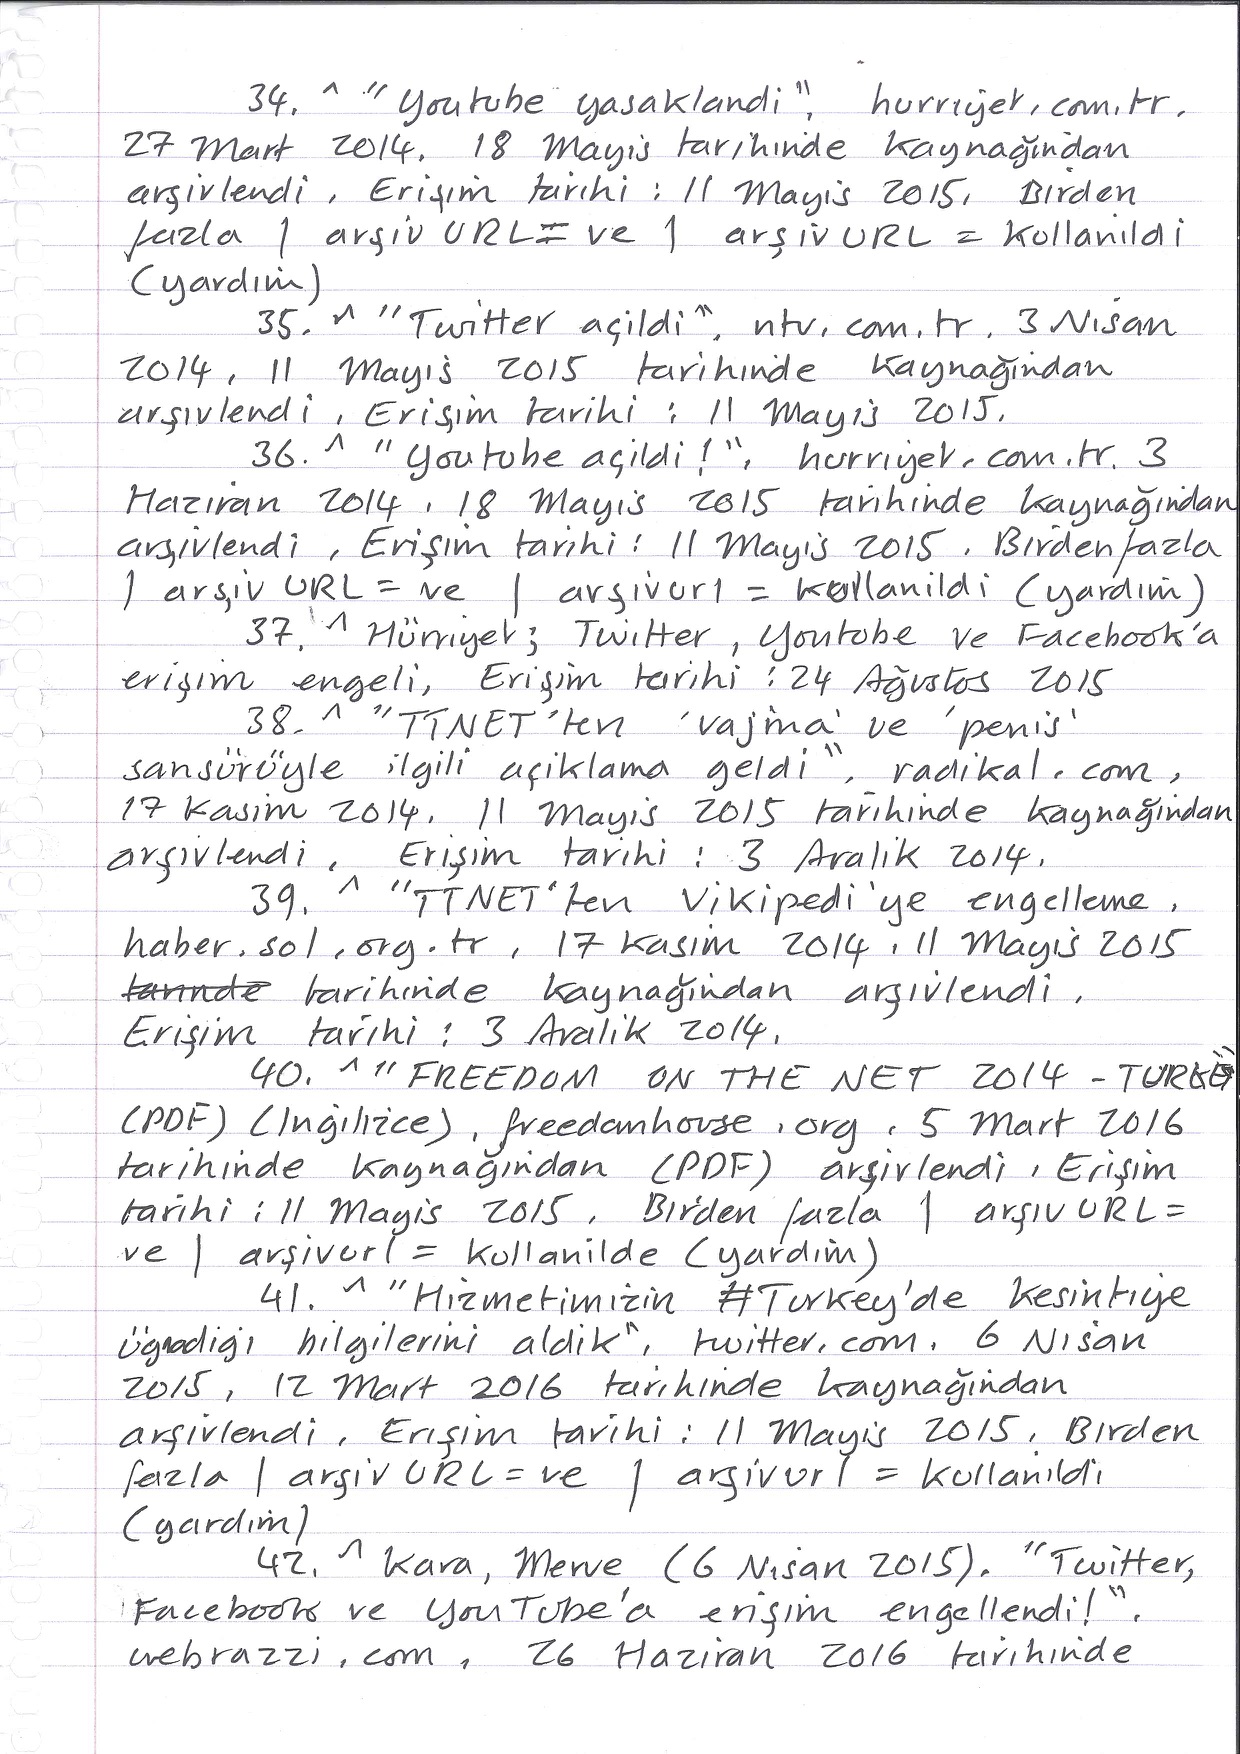 34. ^ "Youtube yasaklandi", hurriyet.com.tr.
27 Mart 2014. 18 Mayis tarihinde kaynağindan
arşivlendi. Erişim tarihi : 11 Mayis 2015. Birden
fazla | arşiv URL= ve | arşiv URL = kullanildi
(yardim)
35. ^ "Twitter açildi", ntv.com.tr. 3 Nisan
2014, 11 Mayis 2015 tarihinde kaynağindan
arşivlendi, Erişim tarihi : 11 Mayis 2015.
36. ^ "Youtube açildi!", hurriyet.com.tr. 3
Haziran 2014. 18 Mayis 2015 tarihinde kaynağindan
arşivlendi, Erişim tarihi : 11 Mayis 2015. Birden fazla
| arşiv URL = ve | arşivurl = kullanildi (yardim)
37. ^ Hürriyet; Twitter, Youtube ve Facebook'a
erişim engeli, Erişim tarihi : 24 Ağustos 2015
38. ^ "TTNET'ten 'vajina' ve 'penis'
sansürüyle ilgili açiklama geldi", radikal.com,
17 Kasim 2014. 11 Mayis 2015 tarihinde kaynağindan
arşivlendi, Erişim tarihi : 3 Aralik 2014.
39. ^ "TTNET'ten Vikipedi'ye engelleme,
haber.sol.org.tr, 17 Kasim 2014. 11 Mayis 2015
tarihinde kaynağindan arşivlendi.
Erişim tarihi : 3 Aralik 2014.
40. ^ "FREEDOM ON THE NET 2014 -
(PDF) (Ingilizce), freedomhouse.org. 5 Mart 2016
tarihinde kaynağindan (PDF) arşivlendi. Erişim
tarihi : 11 Mayis 2015. Birden fazla | arşiv URL=
ve | arşivurl = kullanilde (yardim)
41. ^ "Hizmetimizin #Turkey'de kesintiye
üğradiği bilgilerini aldik", twitter.com. 6 Nisan
2015, 12 Mart 2016 tarihinde kaynağindan
arşivlendi. Erişim tarihi : 11 Mayis 2015. Birden
fazla | arşiv URL = ve | arşivurl = kullanildi
(yardim)
42. ^ Kara, Merve (6 Nisan 2015). "Twitter,
Facebook ve YouTube'a erişim engellendi!".
webrazzi.com, 26 Haziran 2016 tarihinde